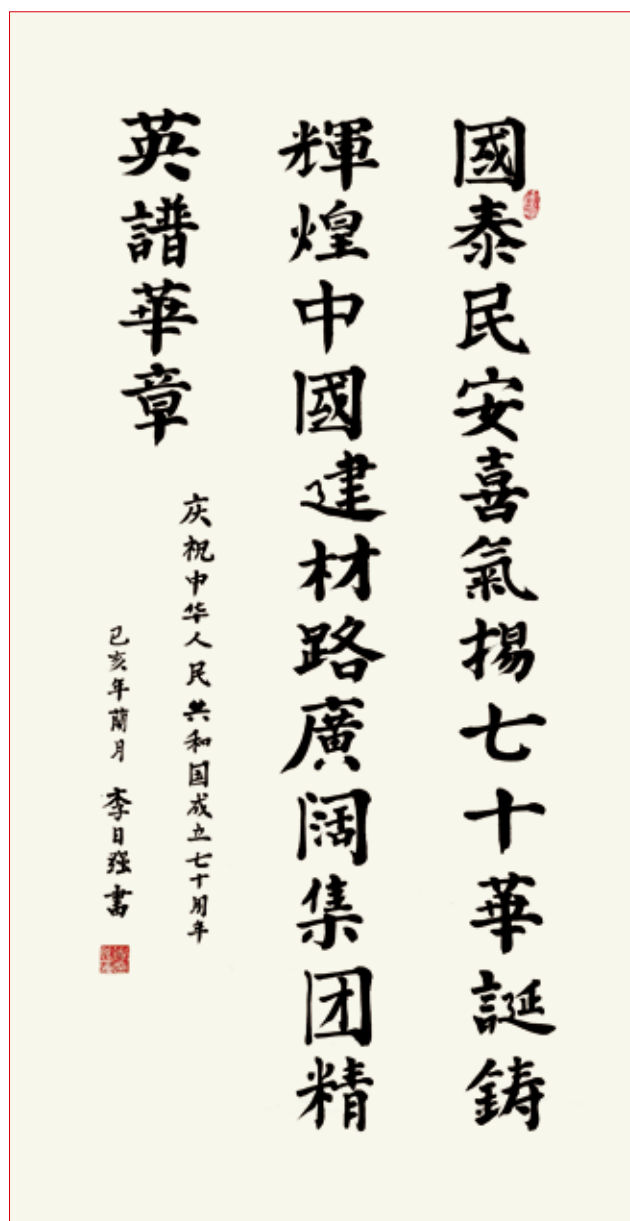 國泰民安喜氣揚七十華誕鋳
輝煌中國建材路廣阔集团精
英譜華章
庆祝中华人民共和国成立七十周年
己亥年蘭月 李日强 書